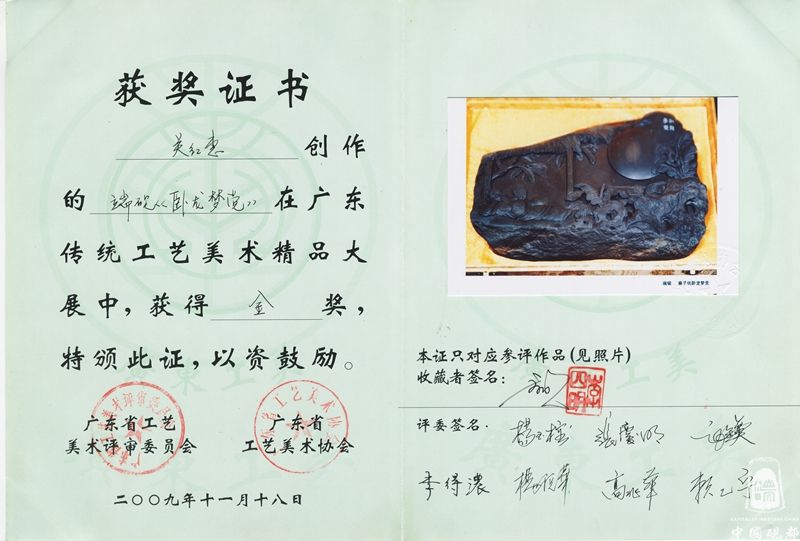 获奖证书
关红惠 创作
的 端砚《卧龙梦觉》 在广东
传统工艺美术精品大
展中，获得 金 奖，
特颁此证，以资鼓励。
广东省工艺
美术评审委员会
广东省
工艺美术协会
二〇〇九年十一月十八日
端砚 麻子坑卧龙梦觉
本证只对应参评作品(见照片)
收藏者签名：
评委签名：
李得浓 高兆华 赖乙宁
中国砚都